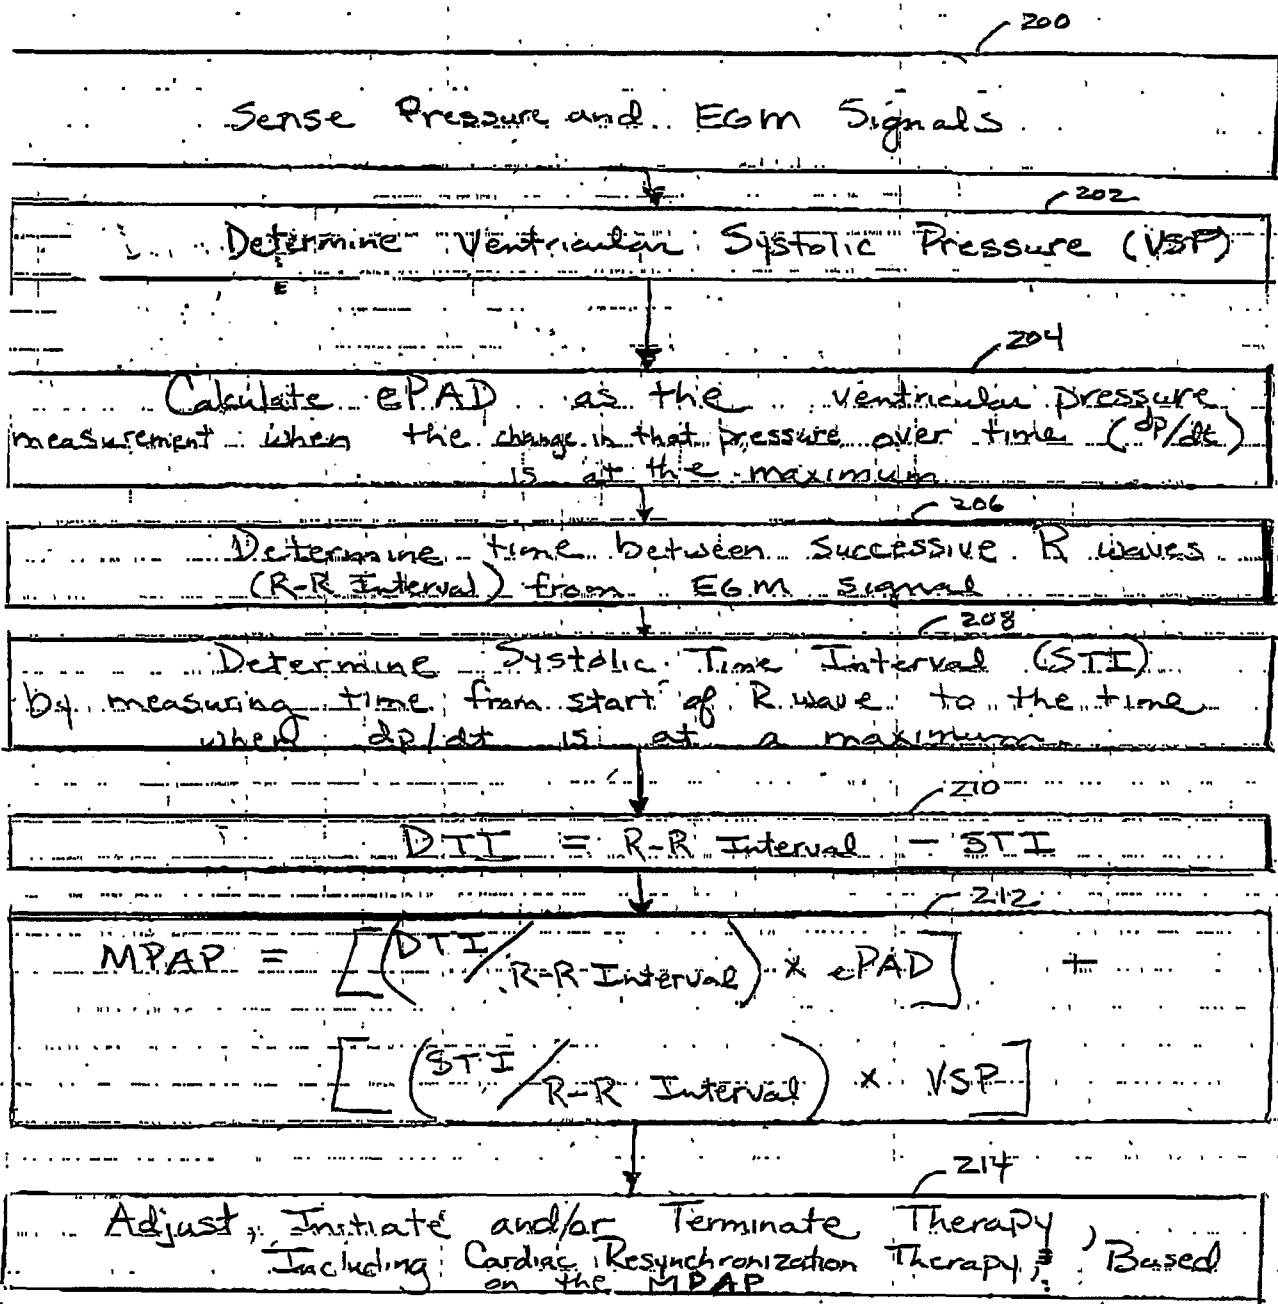 200
Sense Pressure and EGM Signals
202
Determine Ventricular Systolic Pressure (VSP)
204
Calculate ePAD as the ventricular pressure
measurement when the change in that pressure over time (dp/dt)
is at the maximum
206
Determine time between successive R waves
(R-R Interval) from EGM signal
208
Determine Systolic Time Interval (STI)
by measuring time from start of R wave to the time
when dp/dt is at a maximum
210
DTI = R-R Interval - STI
212
MPAP = [(DTI/R-R Interval) × ePAD] +
[(STI/R-R Interval) × VSP]
214
Adjust, Initiate and/or Terminate Therapy,
Including Cardiac Resynchronization Therapy, Based
on the MPAP